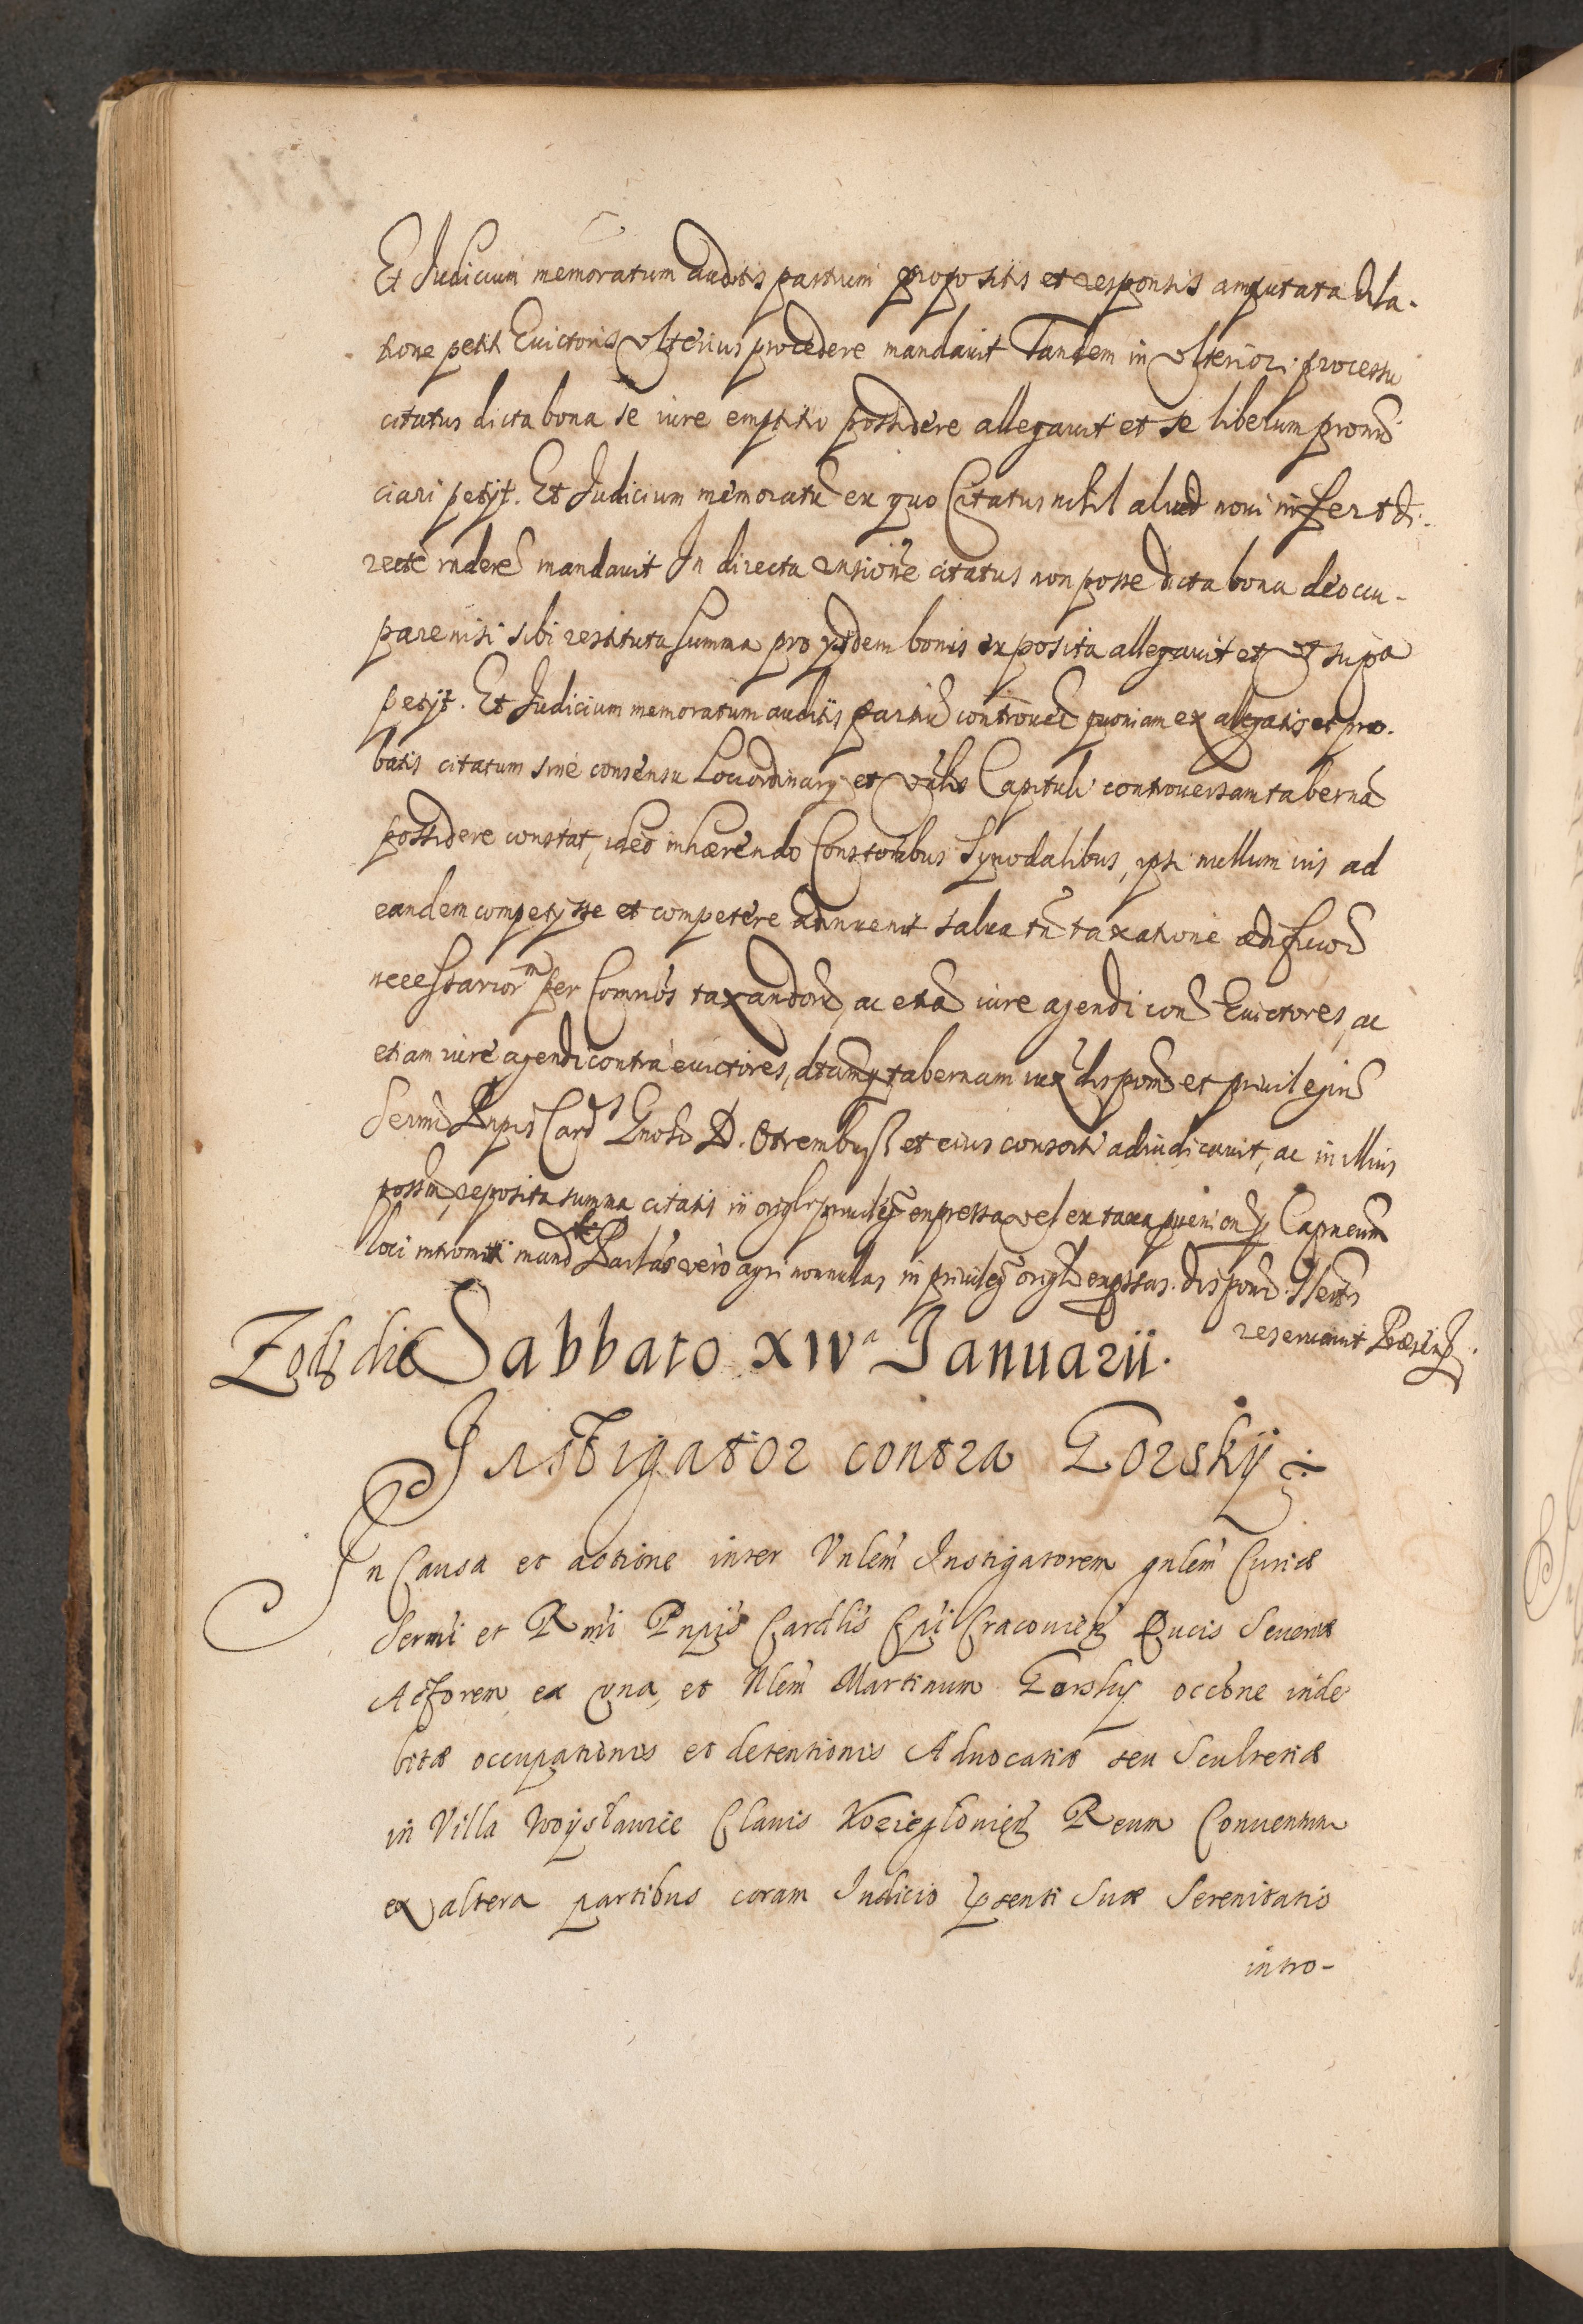 Et Judicium memoratum auditis partium propositis et responsis amputata dila-
tione petit Euictoris vlterius procedere mandauit Tandem in vlteriori processu
citatus dicta bona se iure emptitio possidere allegauit et se liberum pronu͂
ciari petijt. Et Judicium memoratu͂ ex quo Citatus nihil aliud noui infert di-
recte rndere͂ mandauit In directa rnsione citatus non posse dicta bona deoccu-
pare nisi sibi restituta summa pro ijsdem bonis exposita allegauit et vt supa
petijt. Et Judicium memoratum auditis partiu͂ controuer͂ quoniam ex allegatis et pro-
batis citatum sine consensu Lociordinarij et Vnlis Capituli controuersam taberna͂
possidere constat, ideo inhærendo Constonibus Synodalibus, ipsi nullum ius ad
eandem competijsse et competere adinuenit salua tn͂ taxatione ædificior͂
necessarior͂ per Comrios taxandor͂, ac etia͂ iure agendi con͂ Euictores, ac
etiam iure agendi contra euictores, dictamq tabernam iux͂ dispom͂ et priuilegiu͂
Sermi Pnpis Card Gnoso D. Otrembusz et eius consorti adiudicauit, ac in illius
possm͂, reposita summa citatis in origli priuileg͂ expressa vel ex taxa Capneum͂
loci intromitti mand͂ Partes vero agri nonnullas in priuileg͂ origli expssas dispom͂
reseruauit Præsen͂.
die Sabbato XIVª Januarii.
Instigator contra Gorskÿ
In Causa et actione inter Vnlem Instigatorem gnlem Curiæ
Sermi et Rmi Pnpis Cardlis Epi Cracouien͂ Ducis Seueriæ
Actorem ex vna, et Nlem Martinum Gorsky occone inde
bitæ occupationis et detentionis Aduocatiæ seu Scultetiæ
in Villa Woyslawice Clauis Kozieglouien͂ Reum Conuentum
ex altera partibus coram Iudicio psenti Suæ Serenitatis
intro-